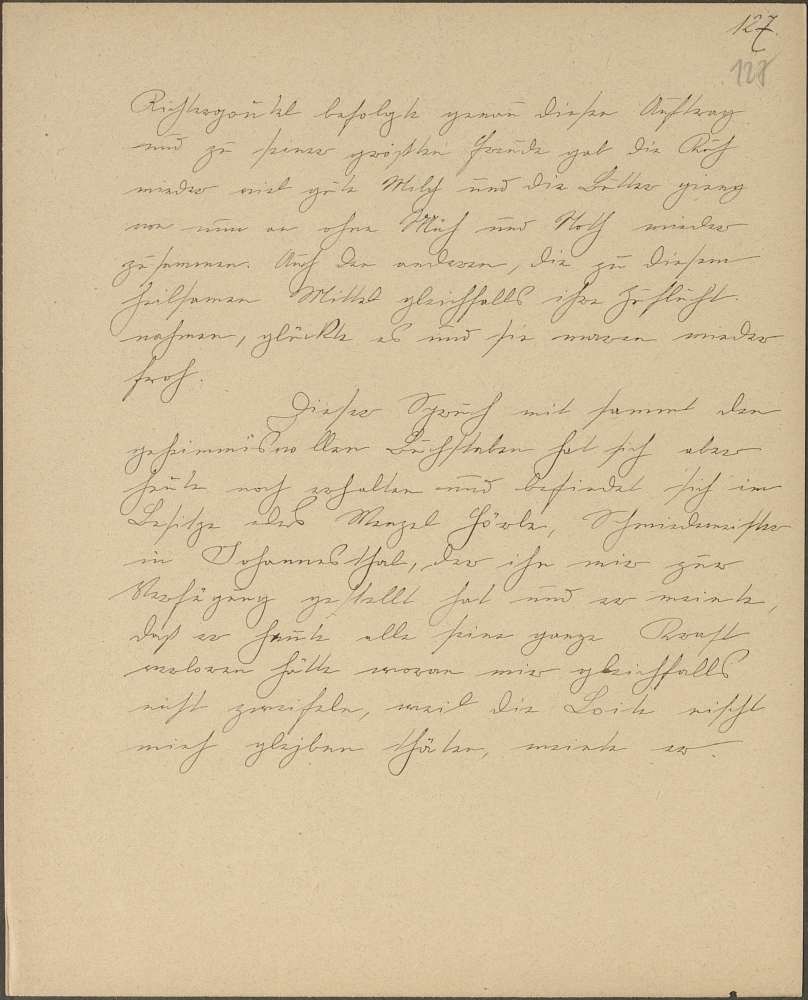 127.
128
Richtergautel befolgte genau diesen Auftrag
und zu seiner größten Freude gab die Kuh
wieder viel gute Milch und die Butter gieng
von nun an ohne Müh und Noth wieder
zusammen. Auch den anderen, die zu diesem
heilsamen Mittel gleichfalls ihre Zuflucht
nahmen, glückte es und sie waren wieder
froh.
Dieser Spruch mit sammt den
geheimnisvollen Buchstaben hat sich aber
heute noch erhalten und befindet sich im
Besitze des Wenzel Hörbe, Schmiedmeister
in Johannesthal, der ihn mir zur
Verfügung gestellt hat und er meinte,
daß er heute alle seine ganze Kraft
verloren hätte woran wir gleichfalls
nicht zweifeln, weil die Loite nischt
mieh glejben thäten, meinte er.